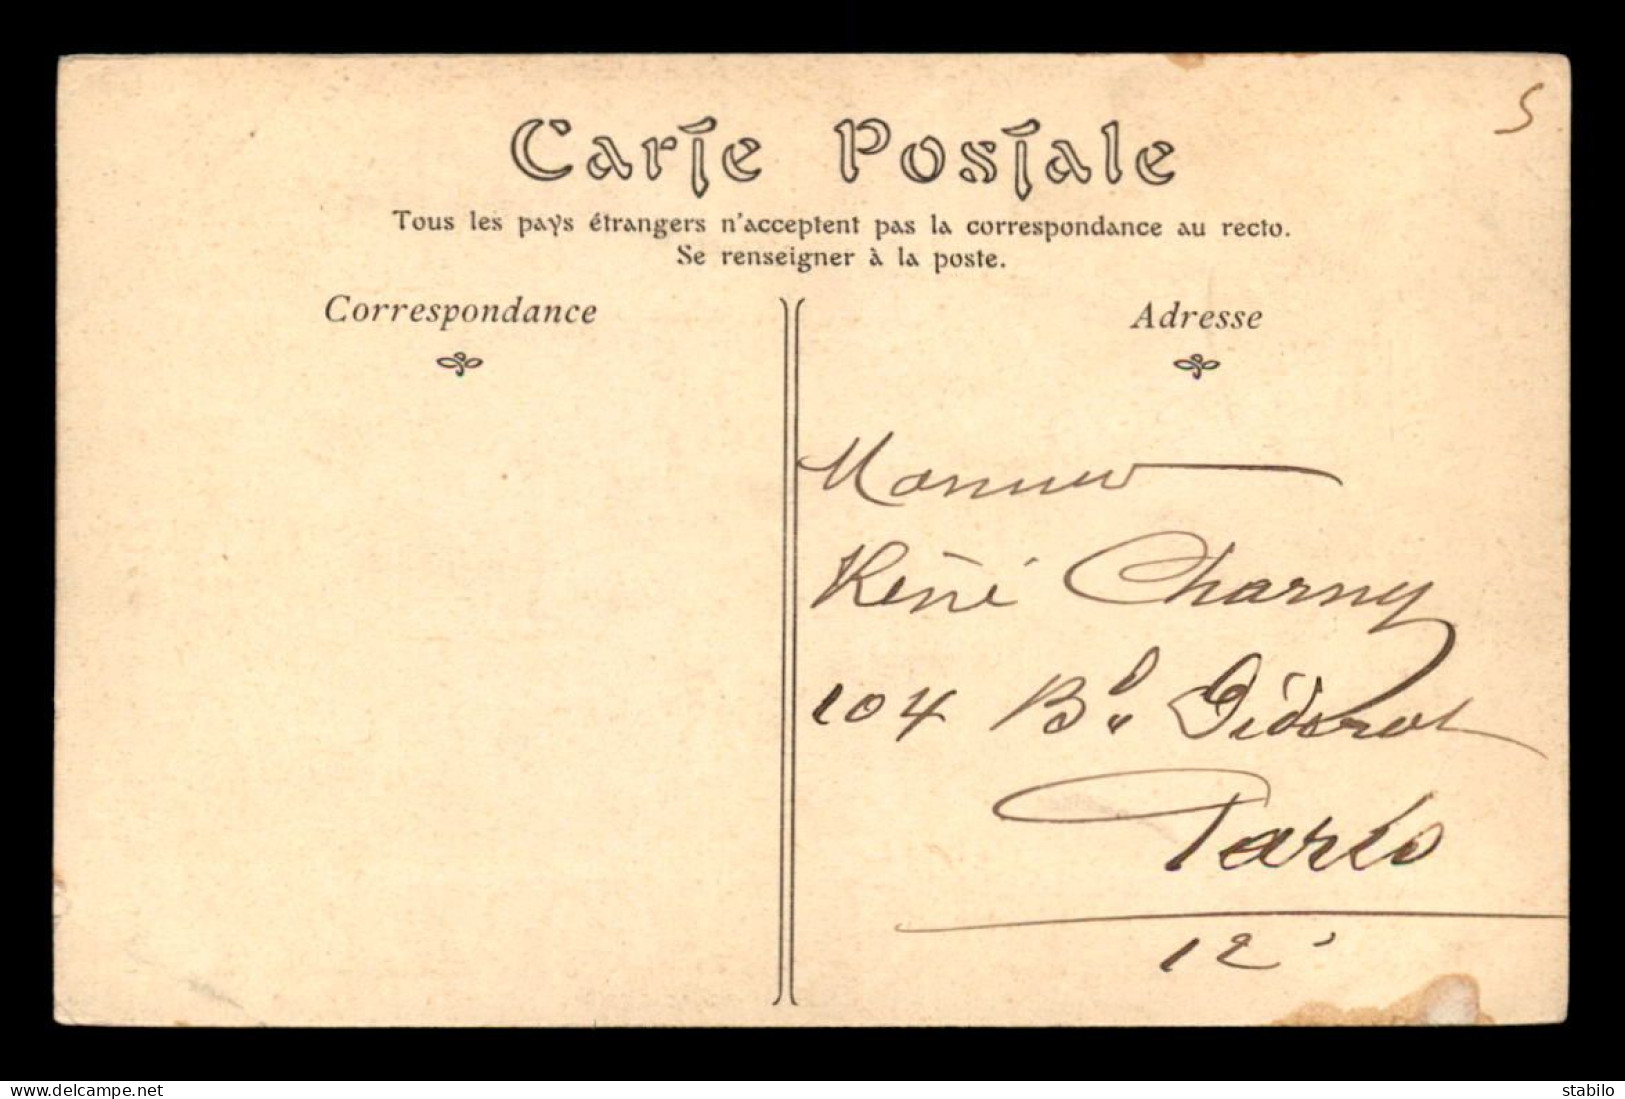 Carte Postale
Tous les pays étrangers n'acceptent pas la correspondance au recto.
Se renseigner à la poste.
Correspondance
Adresse
5
Monsieur
Réné Charny
104 Bd Diderot
Paris
12e
delcampe.net
stabilo